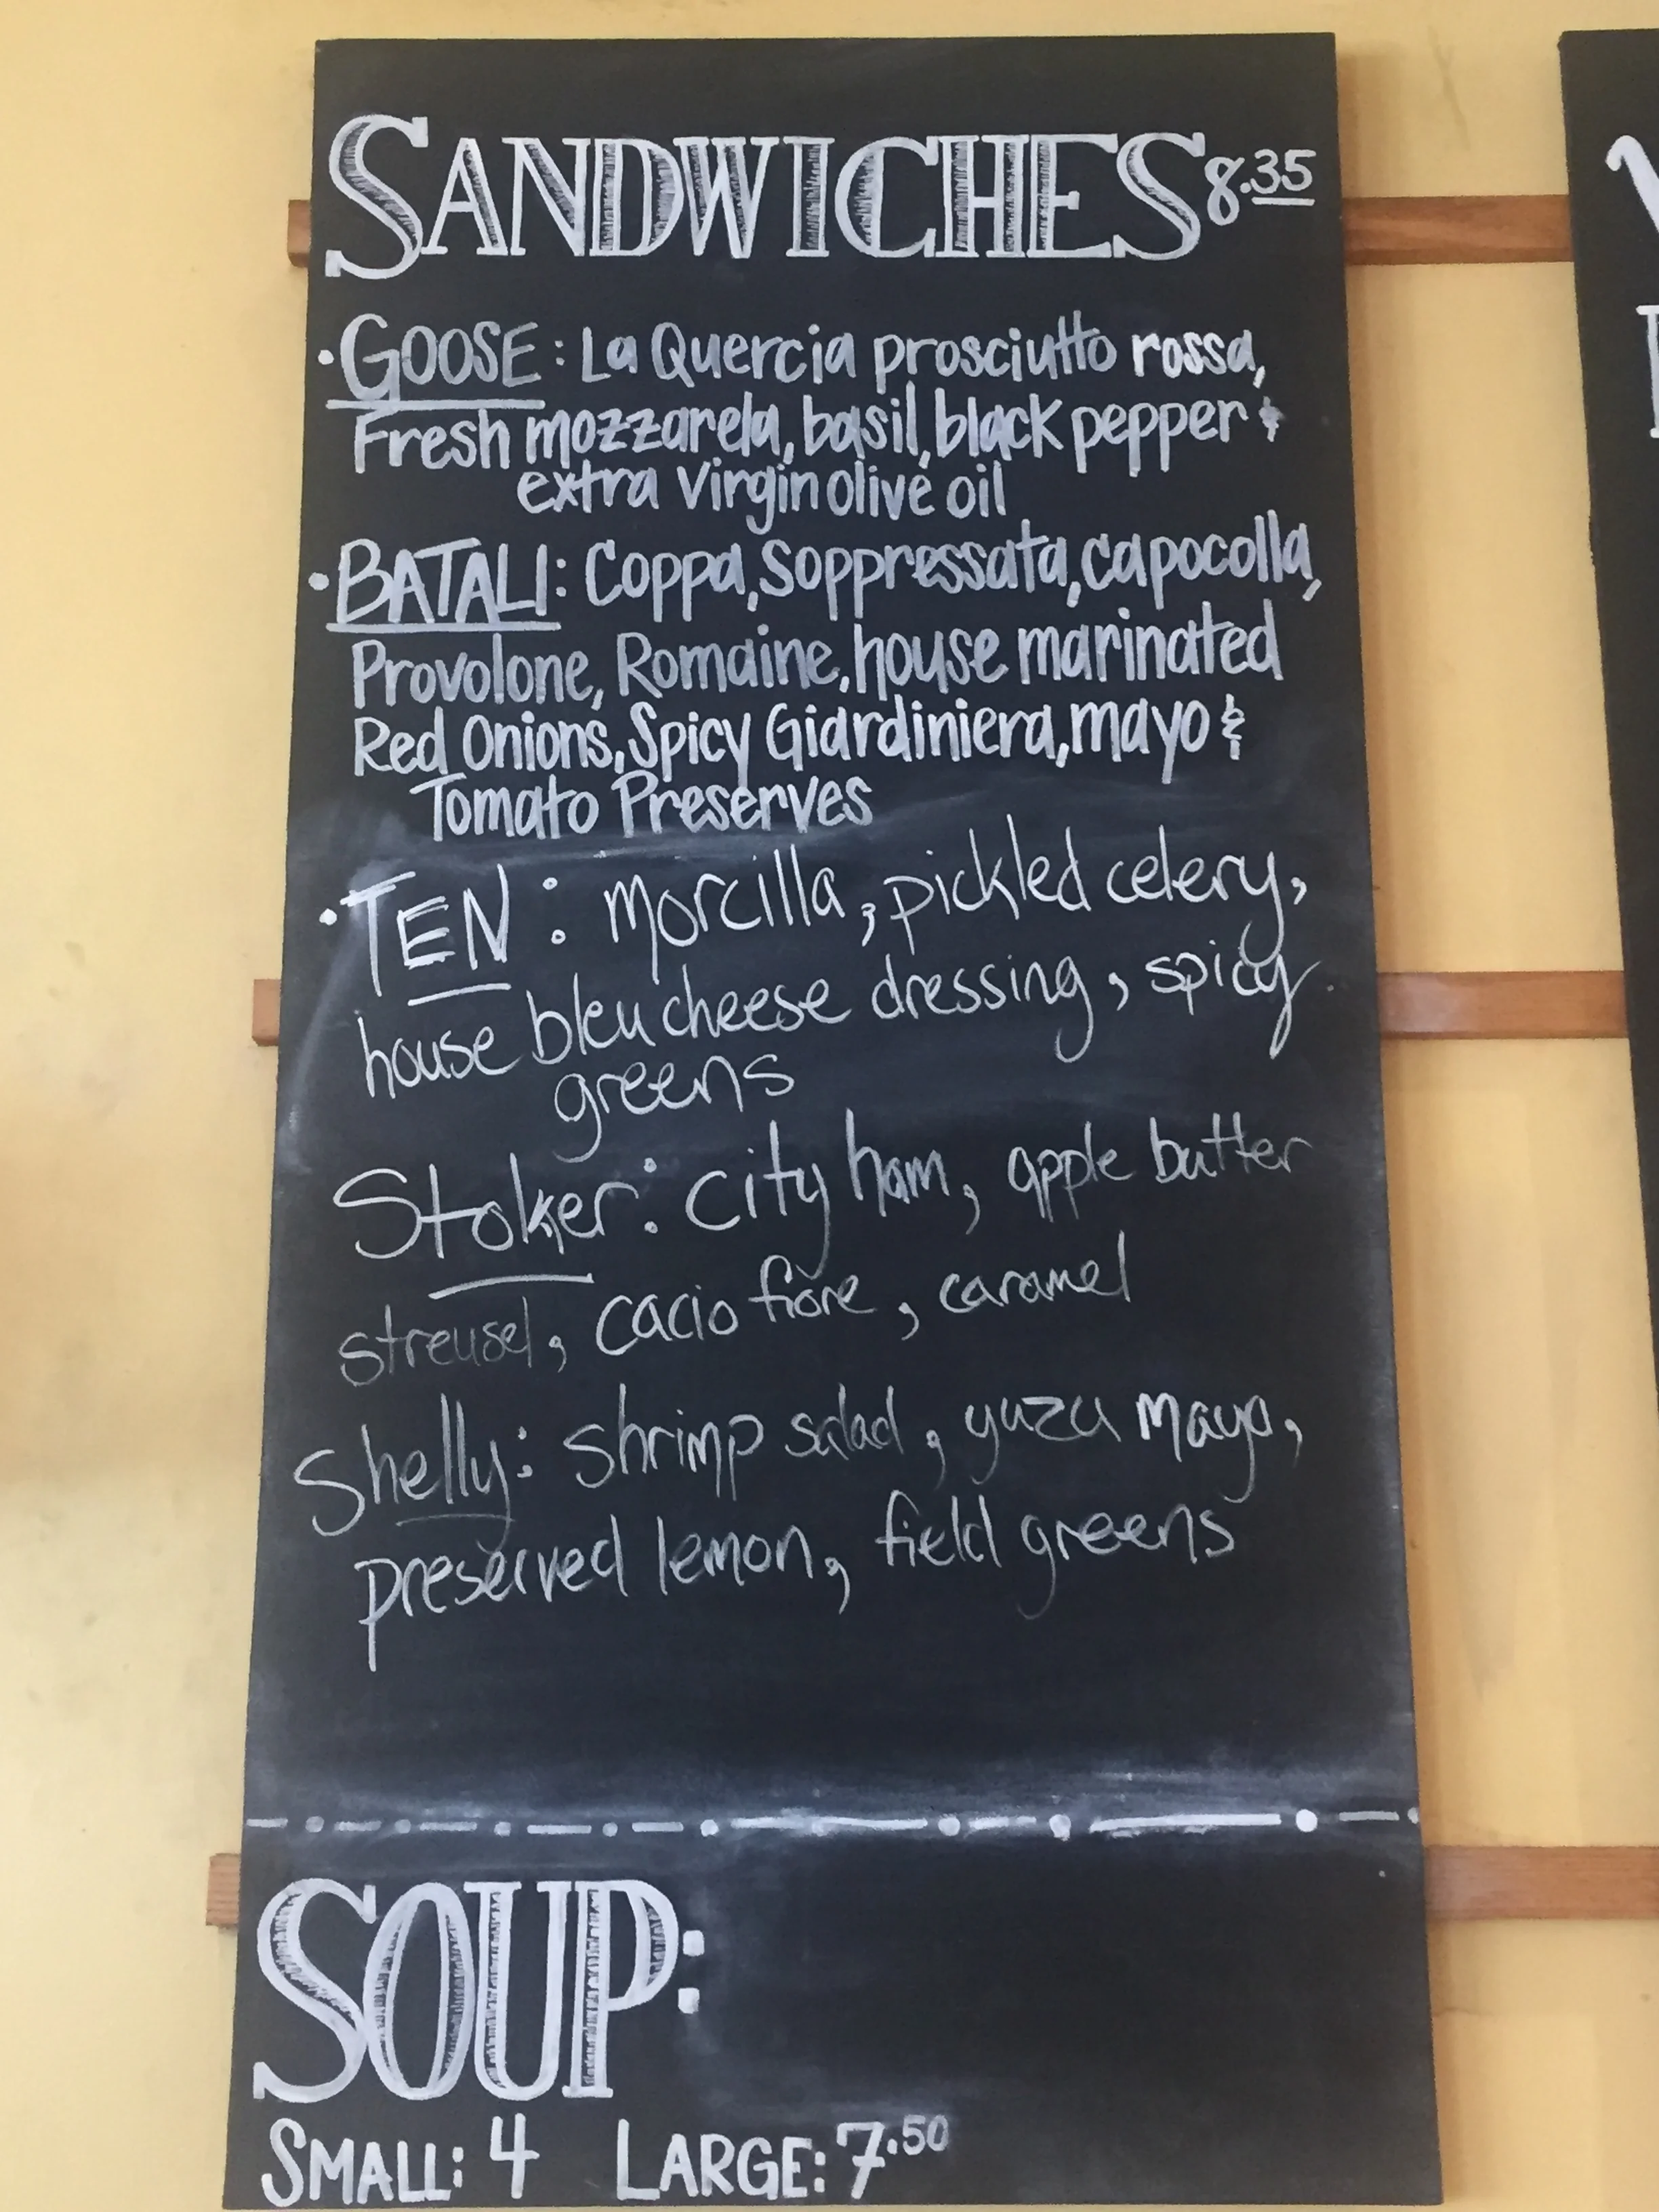 SANDWICHES 8.35
·GOOSE: La Quercia prosciutto rossa,
Fresh mozzarela, basil, black pepper &
extra Virgin olive oil
·BATALI: Coppa, Soppressata, capocolla,
Provolone, Romaine, house marinated
Red Onions, Spicy Giardiniera, mayo &
Tomato Preserves
·TEN: morcilla, pickled celery,
house bleu cheese dressing, spicy
greens
Stoker: city ham, apple butter
streusel, cacio fiore, caramel
Shelly: shrimp salad, yuzu mayo,
preserved lemon, field greens
SOUP:
SMALL: 4 LARGE: 7.50